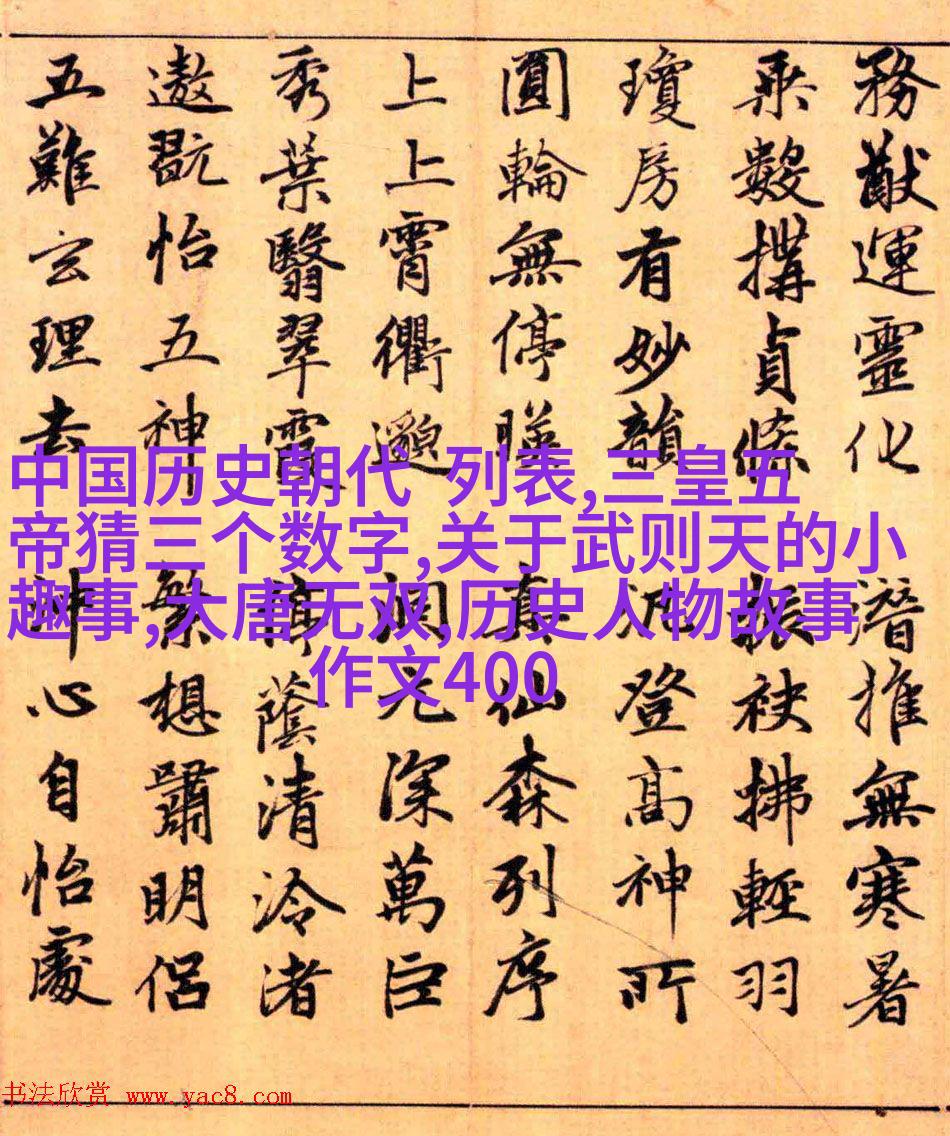 務猷運靈化 潛推無寒暑
乘數構貞條 振袂拂輕羽
瓊房有妙韻 汎登高神所
圓輪無停暎 真仙森列序
上上霄衢邈 洞元深萬巨
秀葉翳翠霞 蔭清泠渚
遨翫怡五神 繁想嘯明侶
五難玄理去 神心自怡處
中国历史朝代 列表,三皇五
帝猜三个数字,关于武则天的小
趣事,大唐无双,历史人物故事
作文400
书法欣赏 www.yac8.com